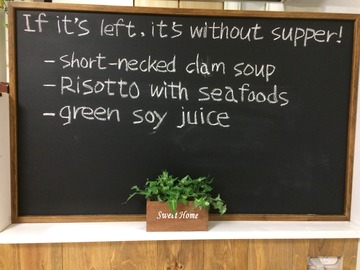 If it's left, it's without supper!
- short-necked clam soup
- Risotto with seafoods
- green soy juice
Sweet Home